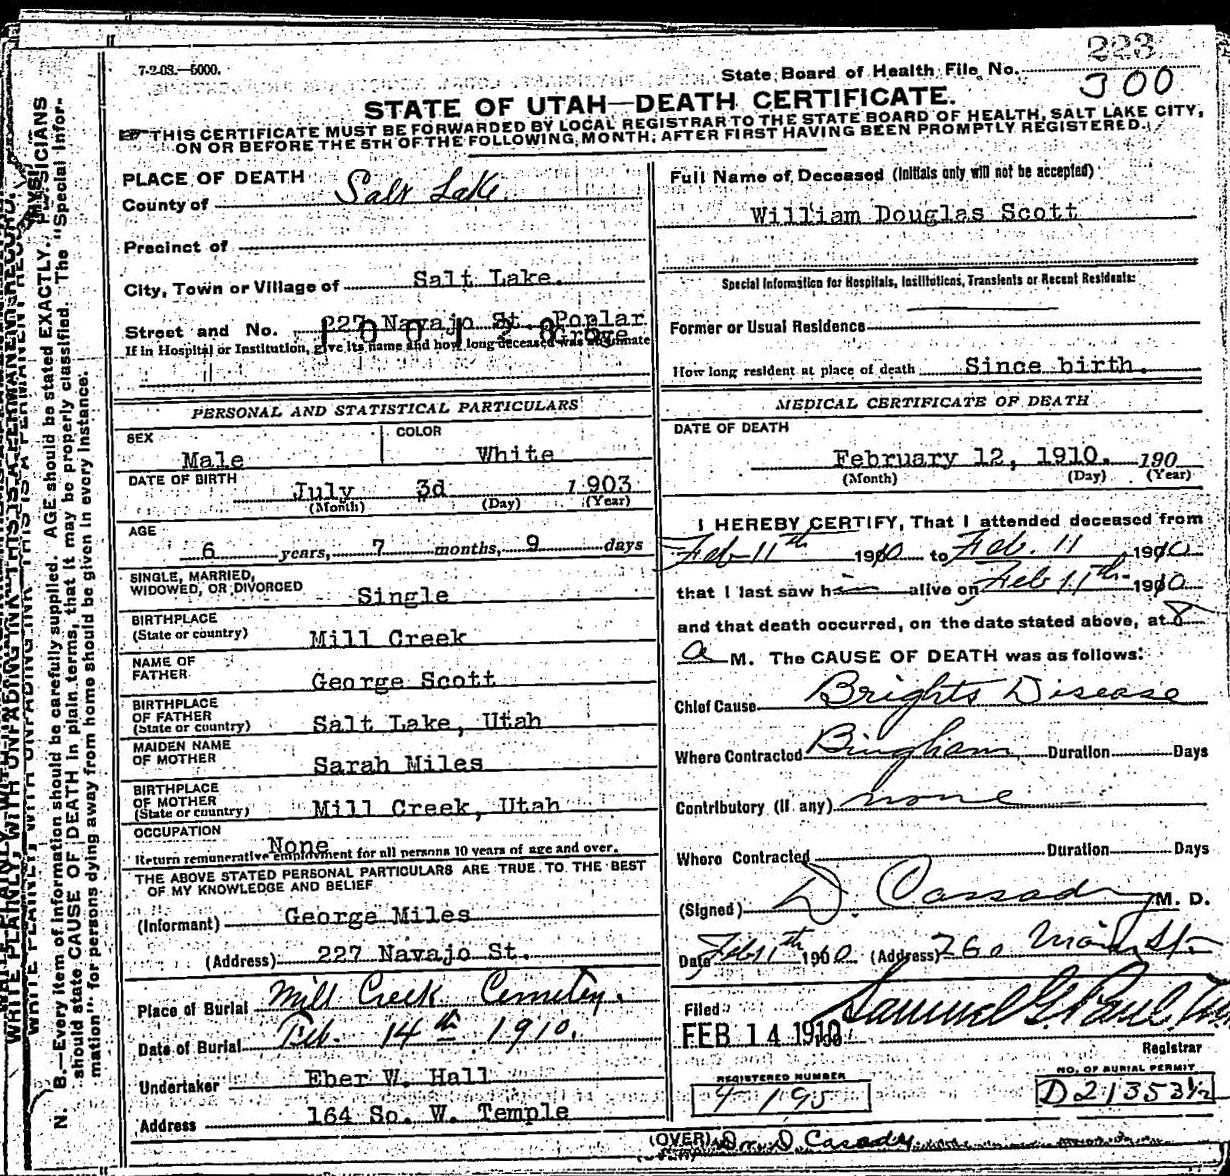 223
7-2-08.—5000.
State Board of Health File No.
300
STATE OF UTAH—DEATH CERTIFICATE.
THIS CERTIFICATE MUST BE FORWARDED BY LOCAL REGISTRAR TO THE STATE BOARD OF HEALTH, SALT LAKE CITY,
ON OR BEFORE THE 5TH OF THE FOLLOWING MONTH, AFTER FIRST HAVING BEEN PROMPTLY REGISTERED.
PLACE OF DEATH
County of Salt Lake.
Precinct of
City, Town or Village of Salt Lake.
Street and No. 227 Navajo St. Poplar
Grove
If in Hospital or Institution, give its name and how long deceased was inmate
Full Name of Deceased (Initials only will not be accepted)
William Douglas Scott
Special Information for Hospitals, Institutions, Transients or Recent Residents:
Former or Usual Residence
How long resident at place of death Since birth.
PERSONAL AND STATISTICAL PARTICULARS
SEX
Male
COLOR
White
DATE OF BIRTH
July 3d 1903
(Month) (Day) (Year)
AGE
6 years, 7 months, 9 days
SINGLE, MARRIED,
WIDOWED, OR DIVORCED Single
BIRTHPLACE
(State or country) Mill Creek
NAME OF
FATHER George Scott
BIRTHPLACE
OF FATHER
(State or country) Salt Lake, Utah
MAIDEN NAME
OF MOTHER Sarah Miles
BIRTHPLACE
OF MOTHER
(State or country) Mill Creek, Utah
OCCUPATION
None
Return remunerative employment for all persons 10 years of age and over.
THE ABOVE STATED PERSONAL PARTICULARS ARE TRUE TO THE BEST
OF MY KNOWLEDGE AND BELIEF
(Informant) George Miles
(Address) 227 Navajo St.
Place of Burial Mill Creek Cemetery.
Date of Burial Feb. 14th 1910.
Undertaker Eber W. Hall
Address 164 So. W. Temple
MEDICAL CERTIFICATE OF DEATH
DATE OF DEATH
February 12, 1910. 190
(Month) (Day) (Year)
I HEREBY CERTIFY, That I attended deceased from
Feb 11th 1910 to Feb. 11 1910
that I last saw him alive on Feb 11th 1910
and that death occurred, on the date stated above, at 8
a M. The CAUSE OF DEATH was as follows:
Chief Cause Brights Disease
Where Contracted Bingham Duration Days
Contributory (if any) none
Where Contracted Duration Days
(Signed) D. Cassady M. D.
Date Feb 11th 1910. (Address) 260 Main St.
Filed
FEB 14 1910
Samuel G. Paul
Registrar
REGISTERED NUMBER
9-195
NO. OF BURIAL PERMIT
D21353½
(OVER) Dr. D. Casady
N. B.—Every item of information should be carefully supplied. AGE should be stated EXACTLY. PHYSICIANS
should state CAUSE OF DEATH in plain terms, that it may be properly classified. The "Special Infor-
mation" for persons dying away from home should be given in every instance.